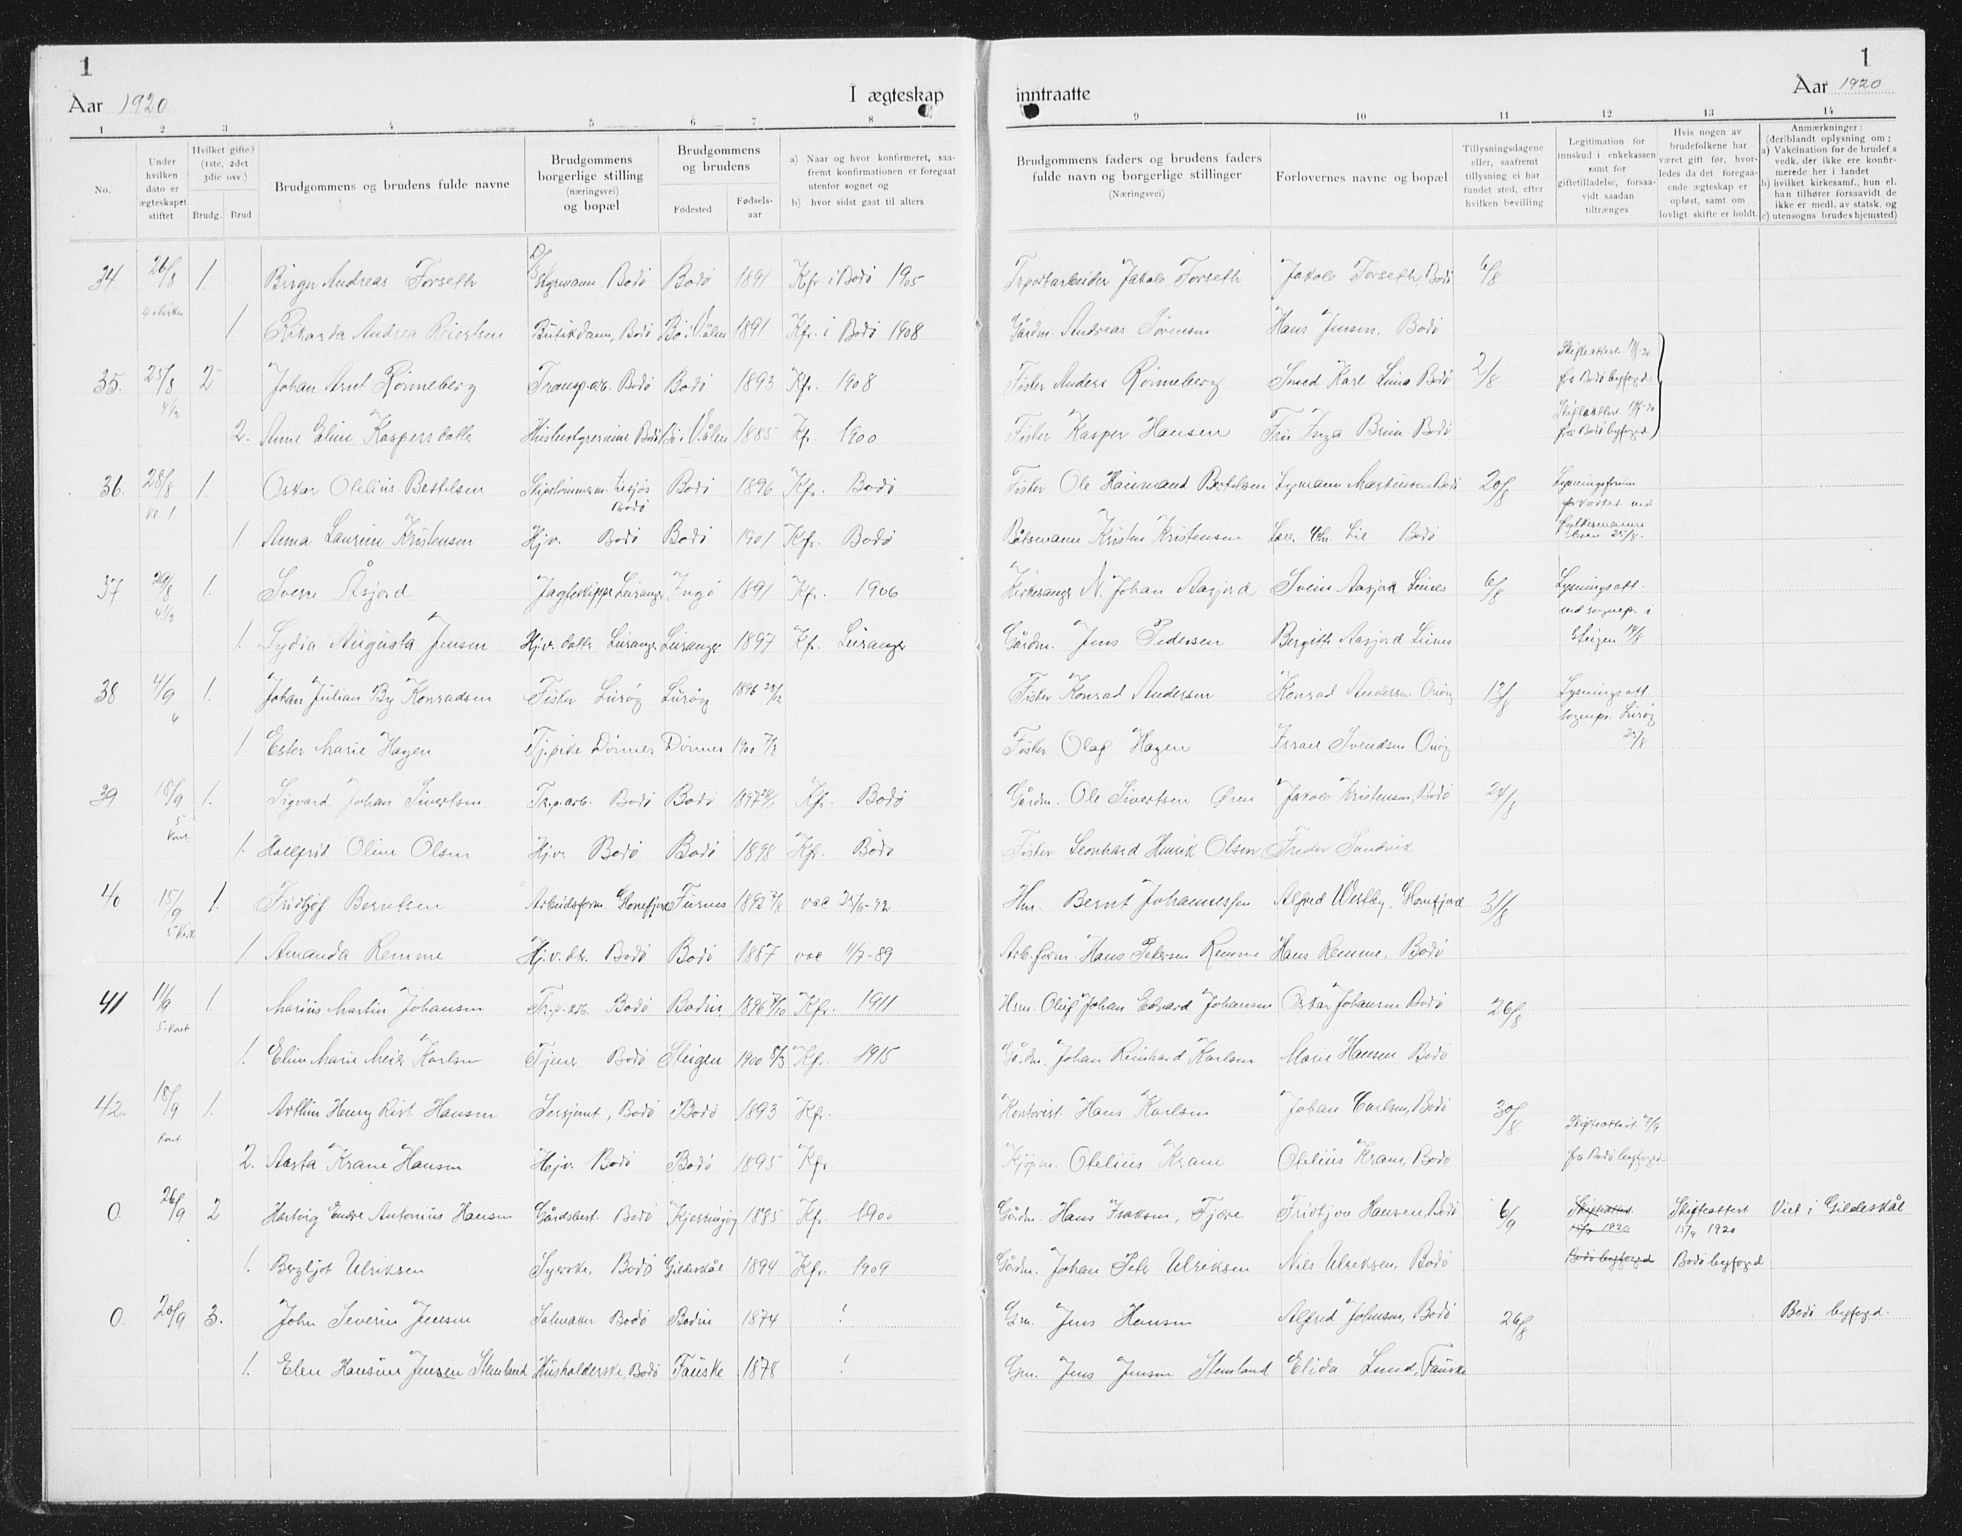 1
Aar 1920.
I ægteskap
1 2 3 4 5 6 7 8
No.
Under hvilken dato er ægteskapet stiftet
Hvilket gifte? (1ste, 2det 3die osv.)
Brudg. Brud
Brudgommens og brudens fulde navne
Brudgommens borgerlige stilling (næringsvei) og bopæl
Brudgommens og brudens
Fødested
Fødsels-aar
a) Naar og hvor konfirmeret, saa-fremt konfirmationen er foregaat utenfor sognet og
b) hvor sidst gaat til alters
34 26/8 1. Birger Andreas Forseth Styrmann Bodø Bodø 1891 Kfr. i Bodø 1905
1 Rikarda Andrea Butikdame, Bodø Bø i V.ålen 1891 Kfr. i Bodø 1908
35. 25/8 2 Johan Arnt Rønneberg Transp.arb. Bodø Bodø 1893 Kfr. 1908
4 1/2
2. Anne Eline Kaspersdatter Bodø Bø i V.ålen 1885 Kfr. 1900
36. 28/8 1. Oskar Otelius Bertelsen Bodø Bodø 1896 Kfr. Bodø
1 Anna Laurine Kristensen Hjv. Bodø Bodø 1901 Kfr. Bodø
37 29/8 1. Sverre Åsjord Jagteskipper Leiranger Ingø 1891 Kfr. 1906
4 1/2
1. Lydia Augusta Jensen Hjv. datter Leiranger Leiranger 1897 Kfr. Leiranger
38 4/9 1. Johan Julian By Konradsen Fisker Lurøy Lurøy 1896 28/12
4
1 Ester Marie Hagen Tj.pike Dønnes Dønnes 1900 7/8
39 18/9 1. Sigvard Johan Sivertsen Tr.p.arb. Bodø Bodø 1897 Kfr. Bodø
5
1. Hallfrid Oline Olsen Hjv. Bodø Bodø 1898 Kfr. Bodø
40 15/9 1. Fridtjof Berntsen Arbeidsform. Glomfjord Furnes 1892 vac 25/6-92
1 Amanda Remme Hj.v.dtr. Bodø Bodø 1887 vac 11/7-89
41 11/9 1. Marius Martin Johansen Tr.p.arb. Bodø Bodin 1896 Kfr. 1911
1. Eline Marie Meier Karlsen Tjener Bodø Steigen 1900 8/3 Kfr. 1915
42. 18/9 1. Arthur Henry Rist Hansen Sersjant, Bodø Bodø 1893 Kfr.
2. Aasta Krane Hansen Hjv. Bodø Bodø 1895 Kfr.
0. 26/9 2 Hartvig Endre Antonius Hansen Gårdsbest. Bodø Kjerringøy 1885 Kfr. 1900
1. Bergljot Ulriksen Syerske, Bodø Gildeskål 1894 Kfr. 1909
0. 20/9 3. John Severin Jensen Salmaker Bodø Bodin 1874 !
1. Elen Hansine Jensen Stemland Husholderske, Bodø Fauske 1878 !
1
inntraatte
Aar 1920
9 10 11 12 13 14
Brudgommens faders og brudens faders fulde navn og borgerlige stillinger
(Næringsvei)
Forlovernes navne og bopæl
Tillysningsdagene eller, saafremt tillysning ei har fundet sted, efter hvilken bevilling
Legitimation for innskud i enkekassen samt for giftetilladelse, forsaa-vidt saadan tiltrænges
Hvis nogen av brudefolkene har været gift før, hvor-ledes da det foregaa-ende ægteskap er opløst, samt om lovligt skifte er holdt
Anmærkninger: (deriblandt oplysning om:
a) Vakcination for de brudef.s vedk. der ikke ere konfir-merede her i landet
b) hvilket kirkesamf., hun el. han tilhører forsaavidt de ikke er medl. av statsk. og
c) utensogns brudes hjemsted)
Trportarbeider Jakob Forseth Jakob Forseth, Bodø 6/8
Gårdm. Andreas Sørensen Hans Jensen, Bodø
Fisker Anders Rønneberg Smed Karl Bodø 2/8 Skifteattest fra Bodø byfogd
Fisker Kasper Hansen Fru Inga Bruun Bodø Skifteattest fra Bodø byfogd
Fisker Ole Bertelsen Martinussen Bodø 20/8
Båtsmann Kristen Kristensen Lie Bodø
Kirkesanger N. Johan Aasjord Svein Aasjord Leines 6/8 Lysningsatt. ved sognepr. i
Gårdm. Jens Pedersen Bergitte Aasjord Leines Steigen 14/8
Fisker Konrad Andersen Konrad Andersen 13/8 Lysningsatt. sognepr. Lurøy
Fisker Olaf Hagen Israel Svendsen
Gårdm. Ole Sivertsen Øren Jakob Kristensen, Bodø 24/8
Fisker Leonhard Henrik Olsen Fredr Sandvik
Hm. Bernt Johannessen Alfred Westby, Glomfjord 31/8
Arb.form. Hans Petersen Remme Hans Remme, Bodø
Hsm. Oluf Johan Edvard Johansen Oskar Johansen Bodø 26/8
Gårdm. Johan Reinhard Karlsen Marie Hansen Bodø
Kontorist Hans Karlsen Johan Carlsen, Bodø 30/8 Skifteattest
Kjøpm. Otelius Krane Otelius Krane, Bodø fra Bodø byfogd
Gårdm. Hans Isaksen, Fjære Fridtjov Hansen, Bodø 6/9 Skifteattest 15/9 1920 Skifteattest 15/9 1920 Viet i Gildeskål
Gårdm. Johan Peter Ulriksen Nils Ulriksen, Bodø Bodø byfogd Bodø byfogd
Gm. Jens Hansen Alfred Johnsen, Bodø 26/8 Bodø byfogd.
Gm. Jens Jensen Stemland Elida Lund, Fauske